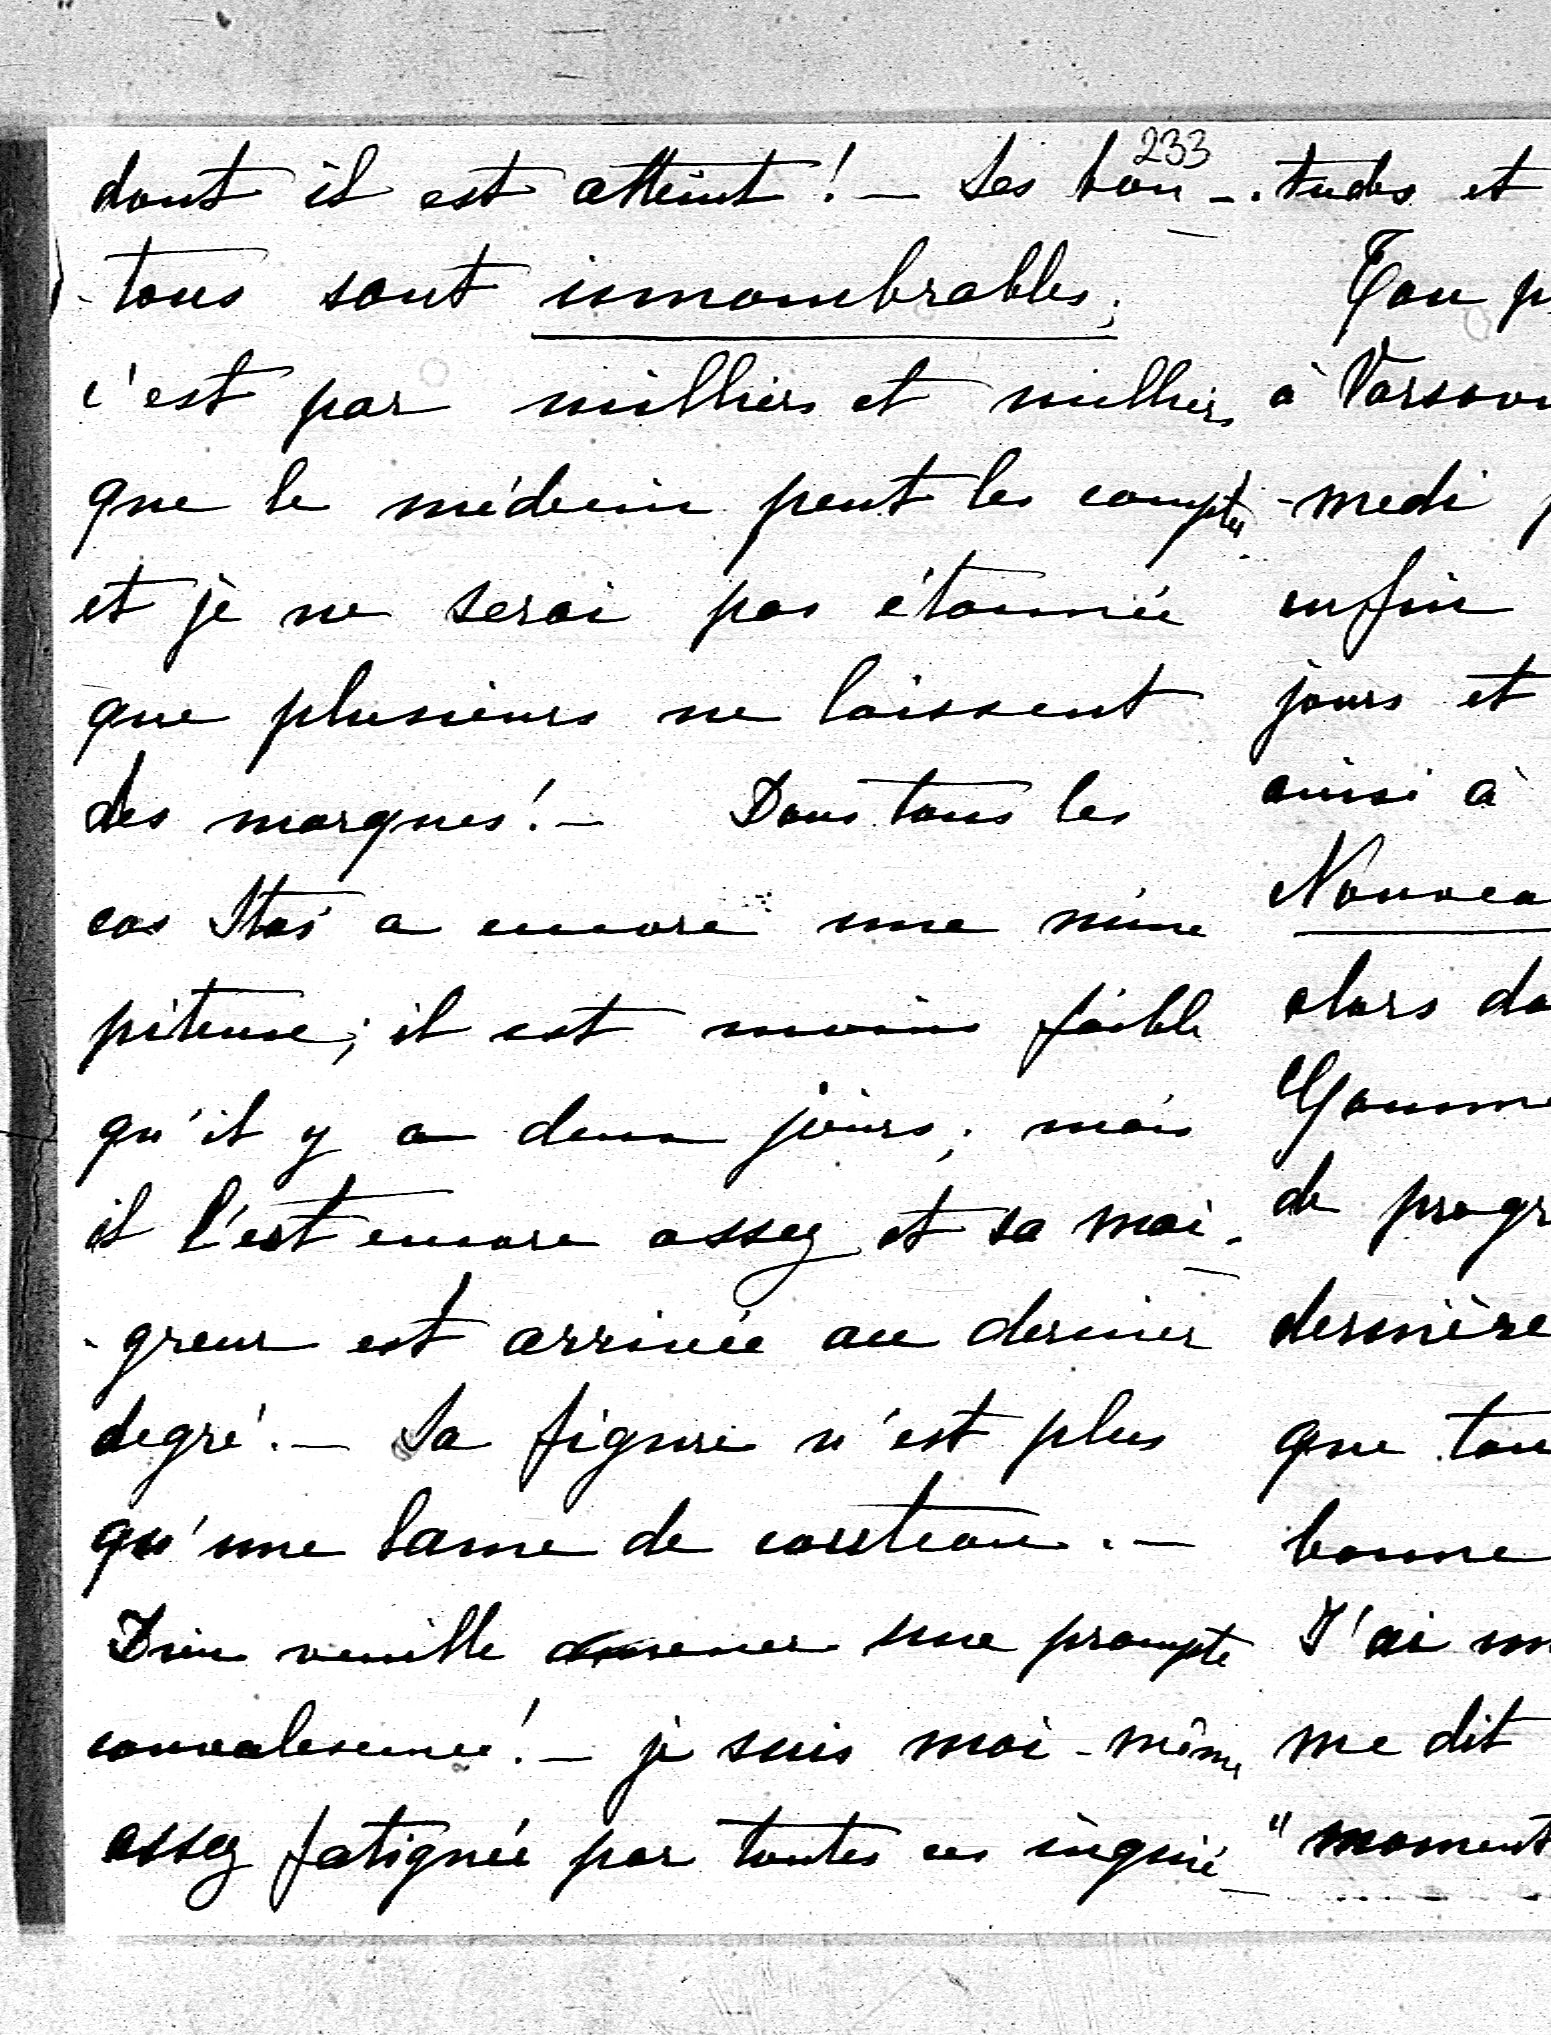 233
dont il est atteint! – Les bou-
-tons sont innombrables;
c'est par milliers et milliers
que le médecin peut les compter
et je ne serai pas étonnée
que plusieurs ne laissent
des marques! – Dans tous les
cas Staś a encore une mine
piteuse; il est moins faible
qu'il y a deux jours; mais
il l'est encore assez et sa mai-
-greur est arrivée au dernier
degré. – Sa figure n'est plus
qu'une lame de couteau. –
Dieu veuille amener une prompte
convalescence! – je suis moi-même
assez fatiguée par toutes ces inquié-
-tudes et
Ton p
à Varsov
-medi
enfin
jours et
ainsi à
Nouvea
alors da
de progr
dernière
que ton
bonne
J'ai
me dit
"moment